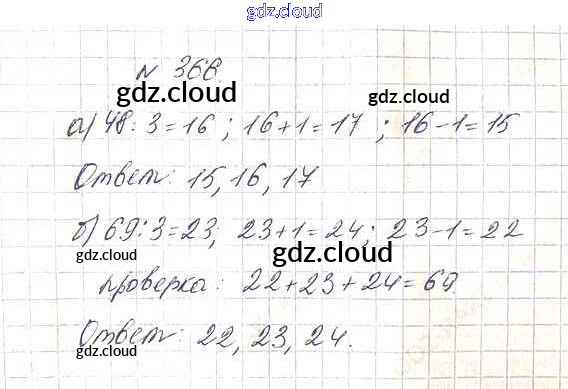 gdz.cloud
№ 366.
gdz.cloud gdz.cloud
а) 48:3=16 ; 16+1=17 ; 16-1=15
Ответ: 15, 16, 17
б) 69:3=23; 23+1=24; 23-1=22
gdz.cloud gdz.cloud
проверка: 22+23+24=69.
Ответ: 22, 23, 24.
gdz.cloud gdz.cloud